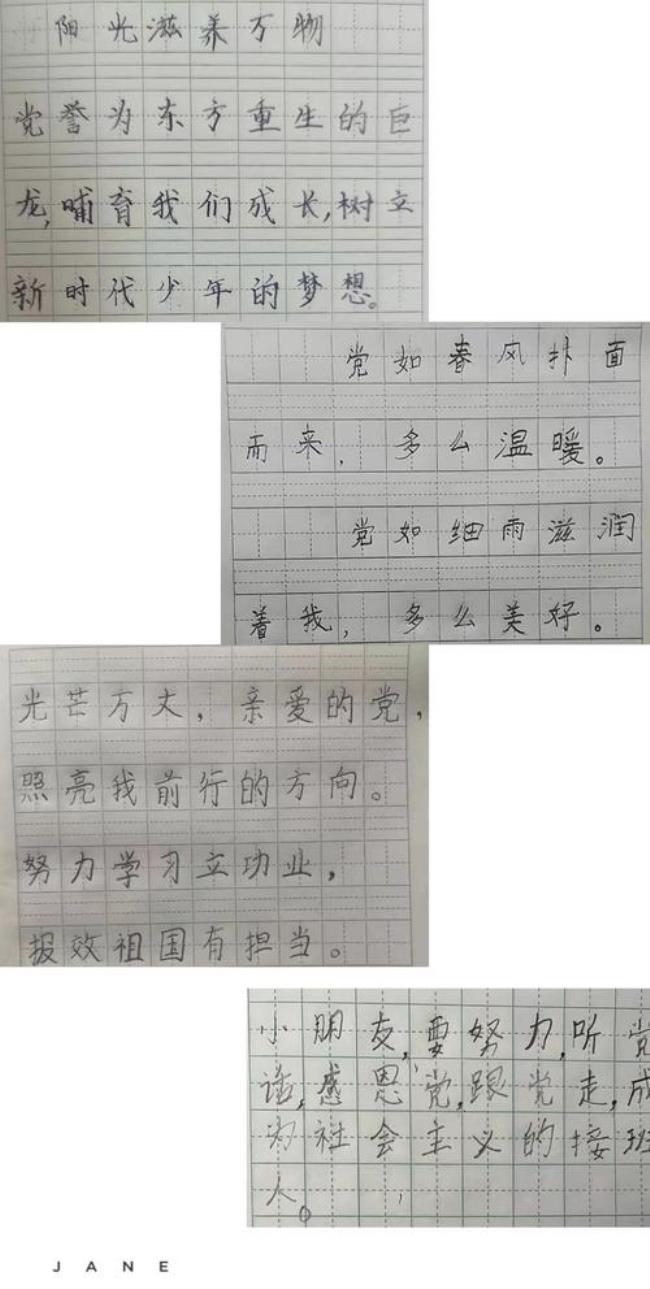 阳光滋养万物
党誉为东方重生的巨
龙,哺育我们成长,树立
新时代少年的梦想。
党如春风扑面
而来,多么温暖。
党如细雨滋润
着我,多么美好。
光芒万丈,亲爱的党,
照亮我前行的方向。
努力学习立功业,
报效祖国有担当。
小朋友,要努力,听党
话,感恩党,跟党走,成
为社会主义的接班
人。
JANE